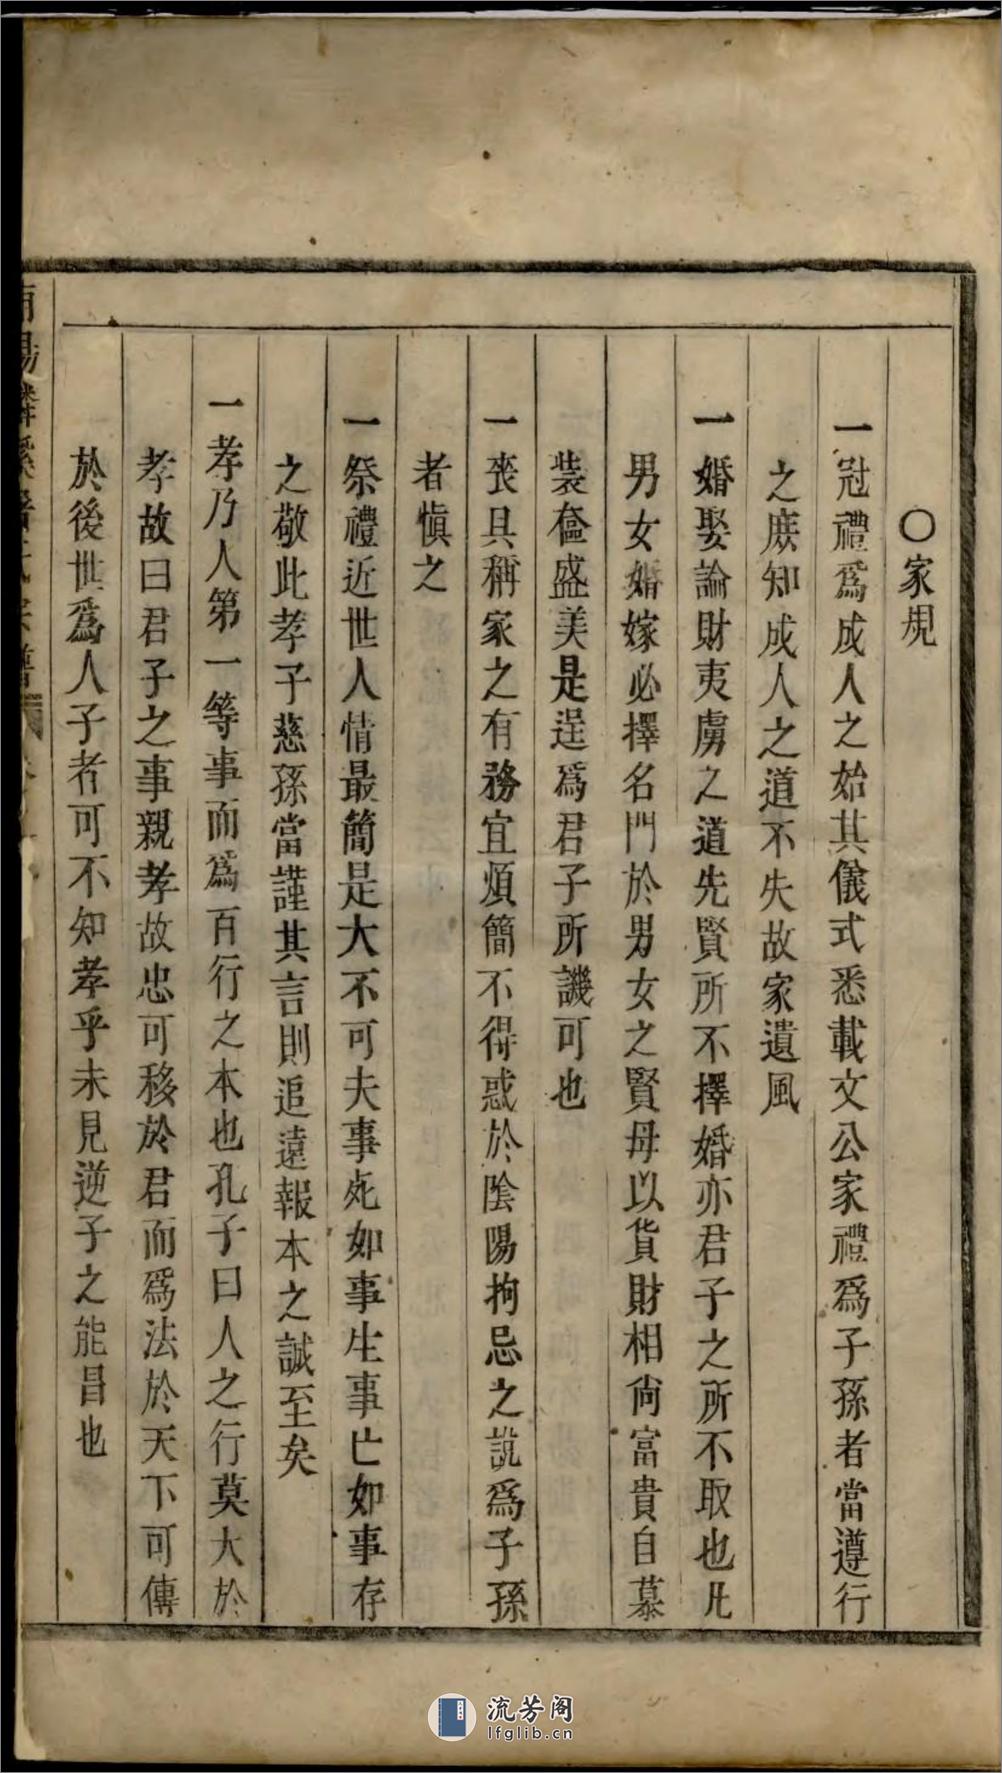 〇家規
一冠禮爲成人之始其儀式悉載文公家禮爲子孫者當遵行
之庶知成人之道不失故家遺風
一婚娶論財夷虜之道先賢所不擇婚亦君子之所不取也凡
男女婚嫁必擇名門於男女之賢毋以貨財相尚富貴自慕
裝奩盛美是逞爲君子所譏可也
一喪具稱家之有務宜煩簡不得惑於陰陽拘忌之說爲子孫
者愼之
一祭禮近世人情最簡是大不可夫事死如事生事亡如事存
之敬此孝子慈孫當謹其言則追遠報本之誠至矣
一孝乃人第一等事而爲百行之本也孔子曰人之行莫大於
孝故曰君子之事親孝故忠可移於君而爲法於天下可傳
於後世爲人子者可不知孝乎未見逆子之能昌也
流芳阁
lfglib.cn